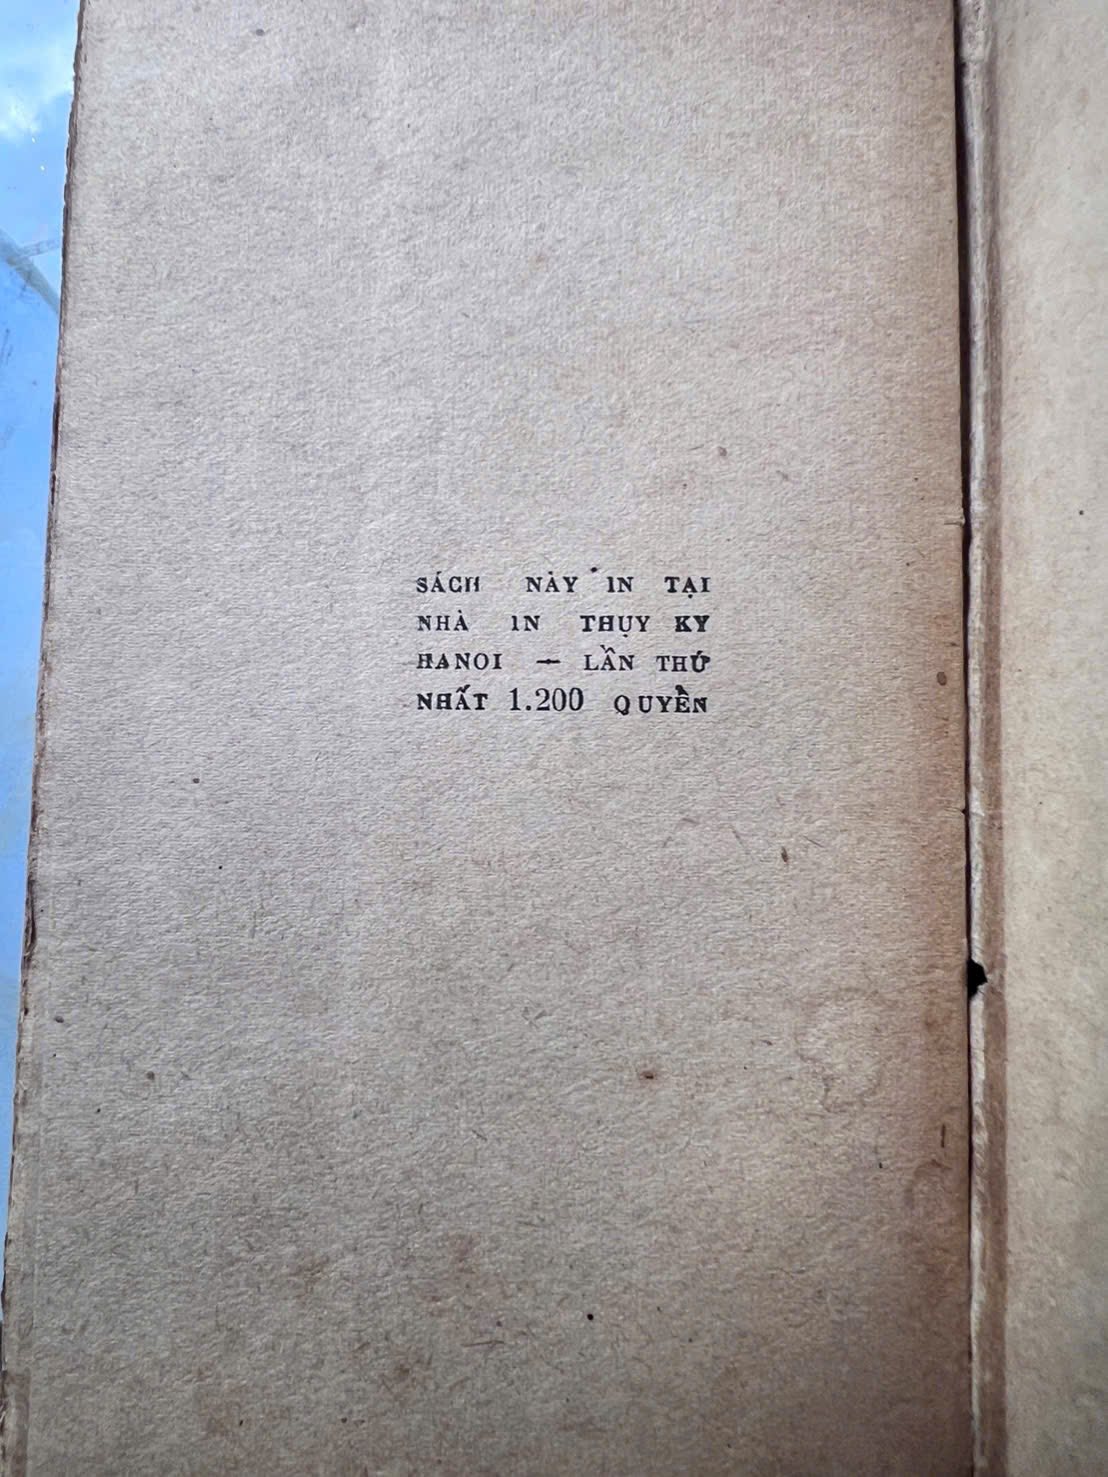 SÁCH NÀY IN TẠI
NHÀ IN THỤY KY
HANOI — LẦN THỨ
NHẤT 1.200 QUYỀN